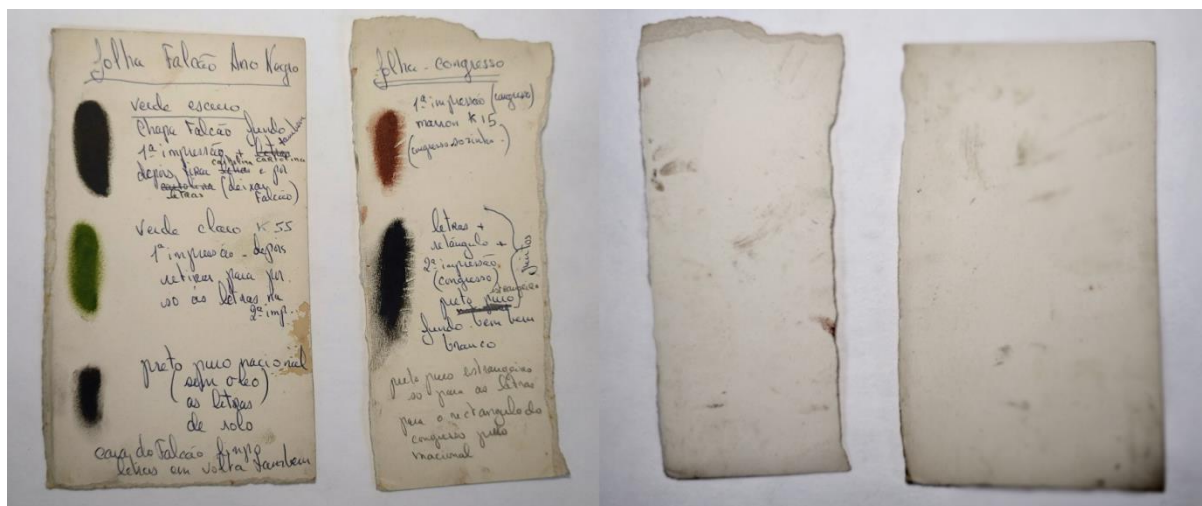 folha Falcão Ano Negro
verde escuro
Chapa Falcão fundo
1ª impressão + letras também
depois tirar letras e por
cartolina cartolina
letras (deixar Falcão)
verde claro K 55
1ª impressão - depois
retirar para por
so as letras na
2ª imp..
preto puro nacional
(sem oleo)
as letras
de rolo
cara do Falcão limpo
letras em volta tambem
folha - congresso
1ª impressão (congresso)
marron K 15
(congresso sozinho)
letras +
retângulo +
2ª impressão
(congresso)
juntos
preto puro estrangeiro
fundo bem bem
branco
preto puro estrangeiro
so para as letras
para o rectangulo do
congresso preto
nacional